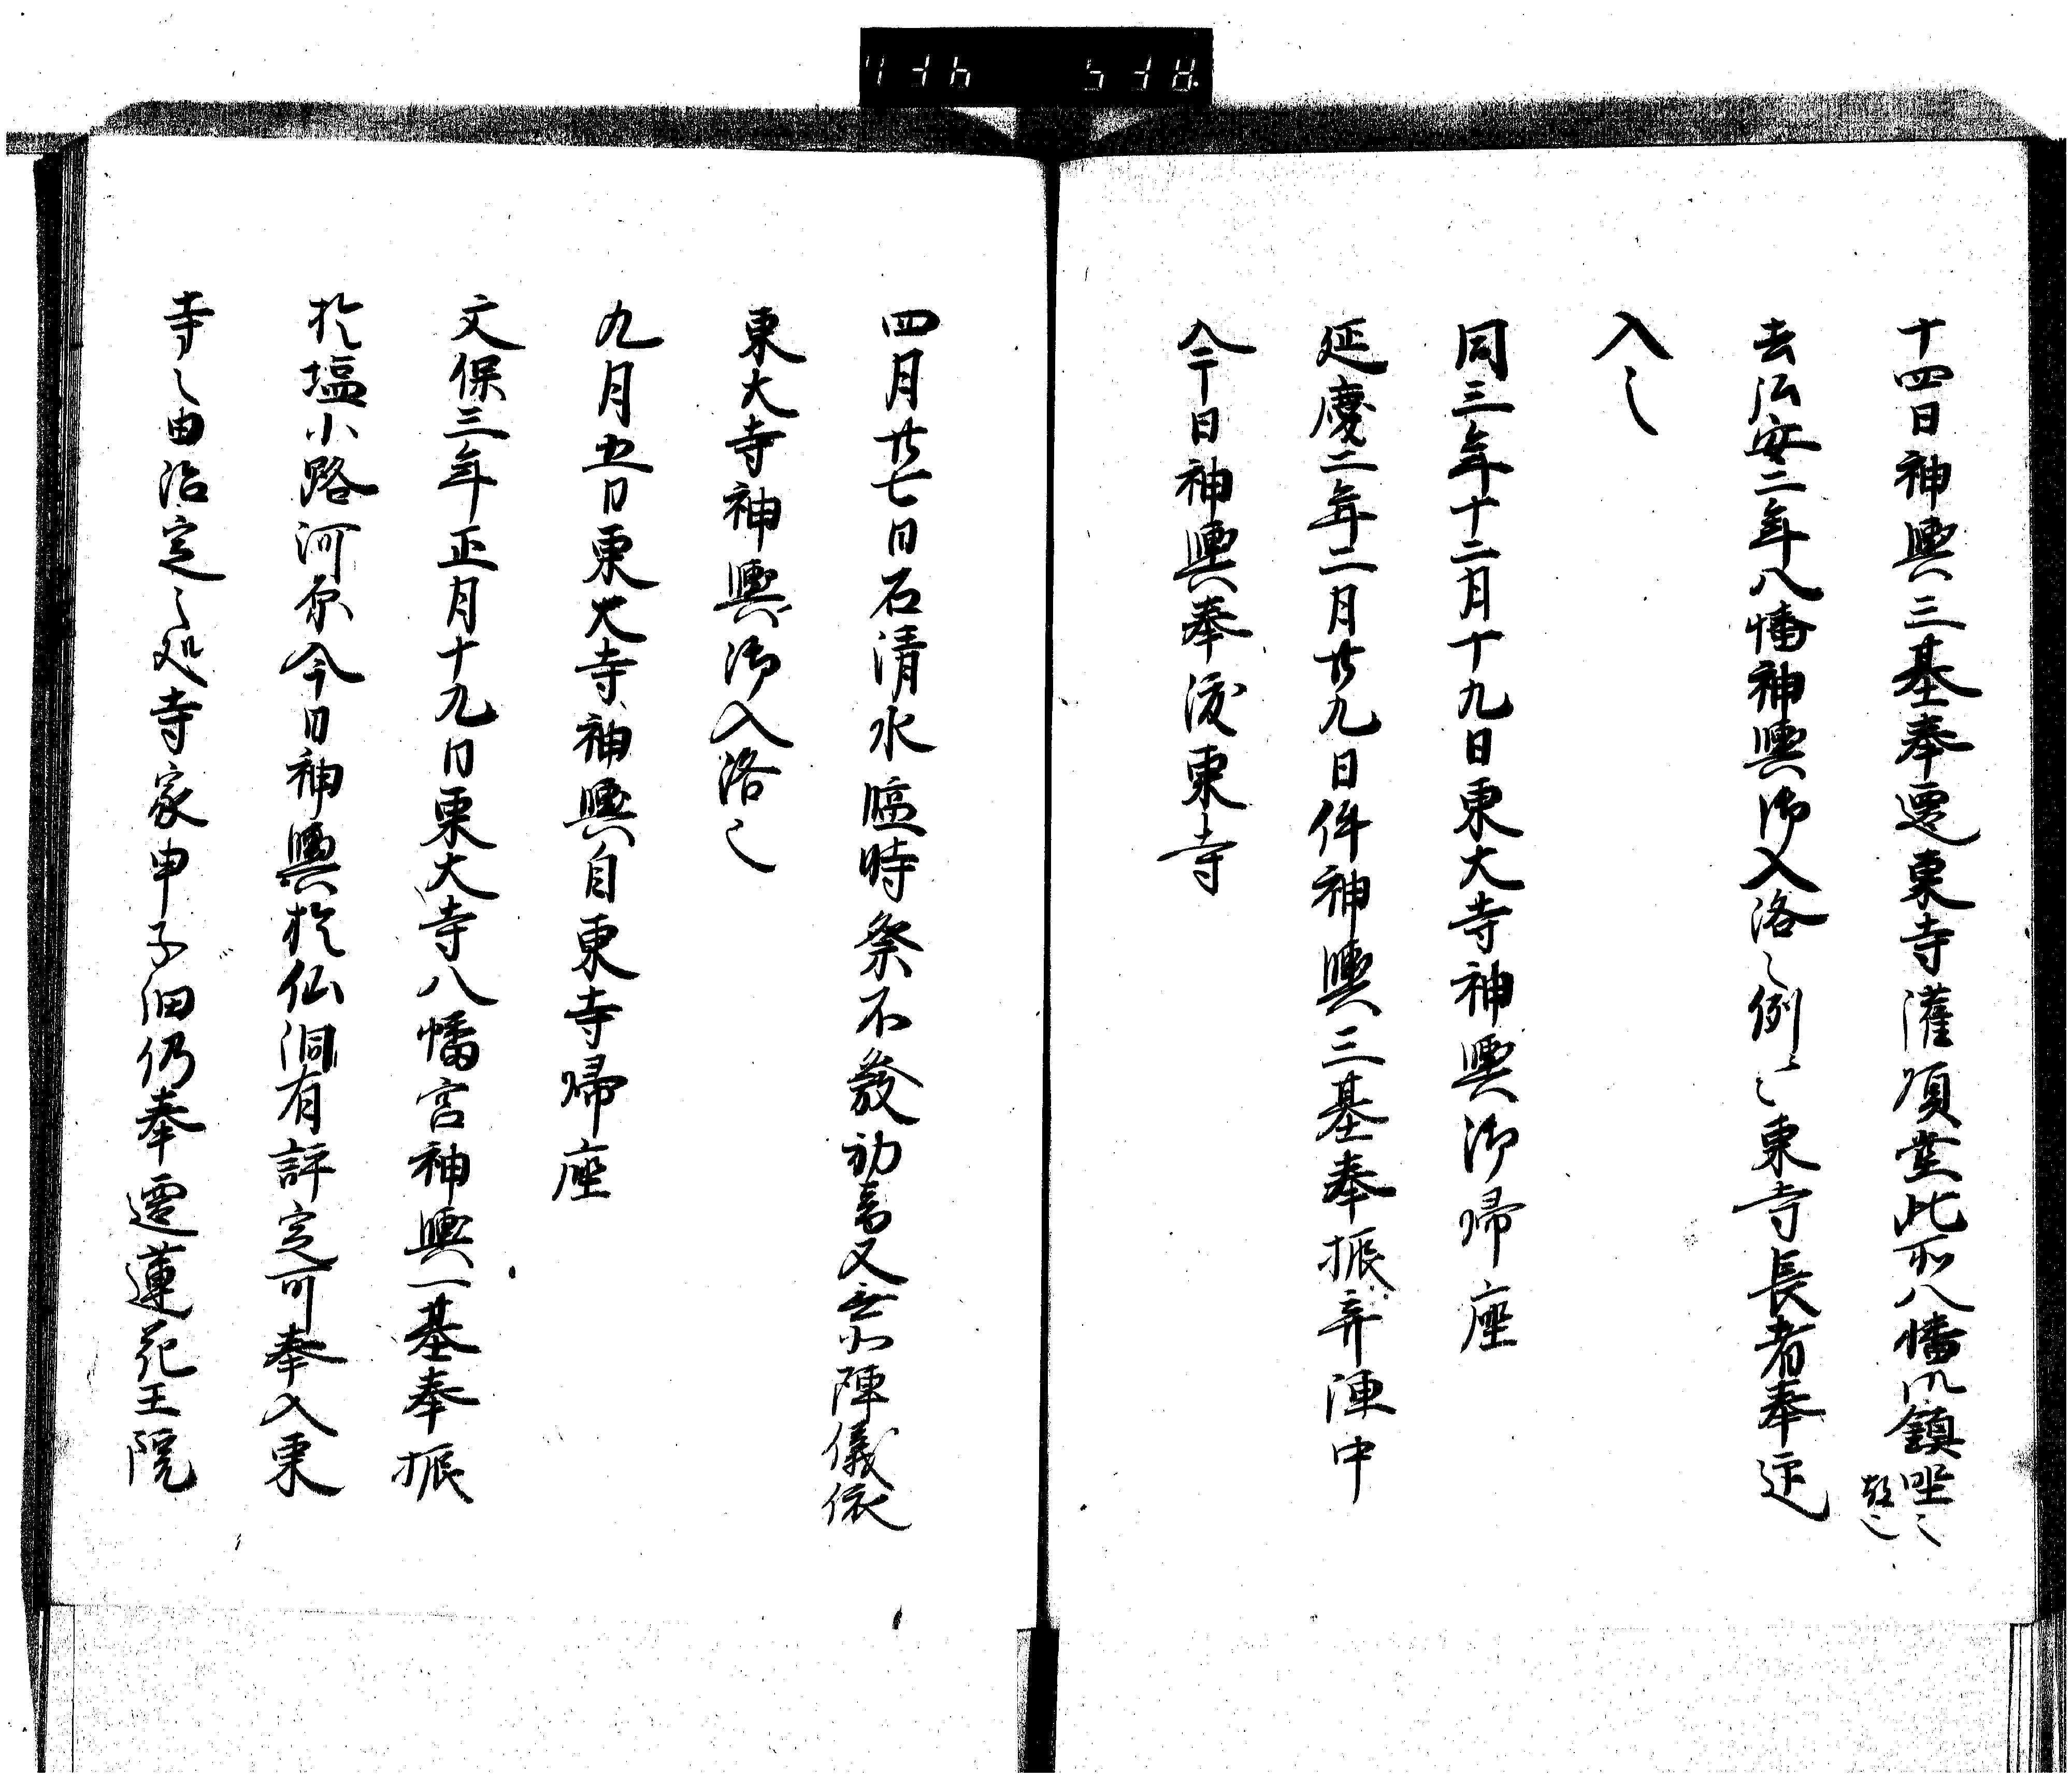 十四日神輿三基奉遷東寺灌頂堂此所八幡御鎮坐之
去弘安二年八幡神輿御入洛之例云々東寺長者奉迎
入之
同三年十二月十九日東大寺神輿御帰座
延慶二年二月廿九日件神輿三基奉振弃陣中
今日神輿奉渡東寺
四月廿七日石清水臨時祭不發幼音又無列陣儀依
東大寺神輿御入洛也
九月五日東大寺神輿自東寺帰座
文保三年正月十九日東大寺八幡宮神輿一基奉振
於塩小路河原今日神輿於仙洞有評定可奉入東
寺之由治定之処寺家申子細仍奉遷蓮花王院